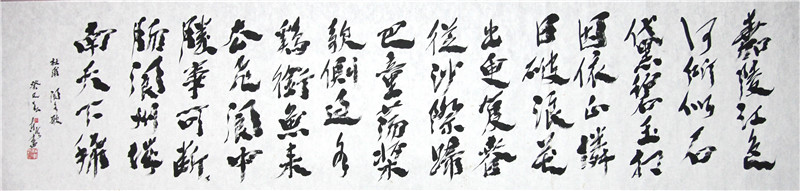 嘉陵江色
何所似石
黛碧玉相
因依正憐
日破浪花
出更復春
從沙際歸
巴童蕩槳
欹側過水
鷄銜魚來
去飛閬中
勝事可斷
腸閬州城
南天下稀
杜甫 閬水歌
癸巳春 書